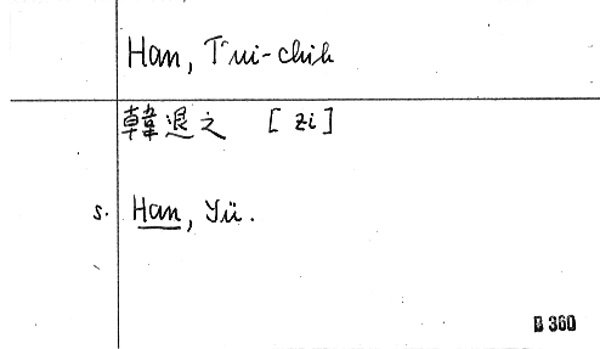 Han, T'ui-chih
韓退之 [zi]
s. Han, Yü.
B 360